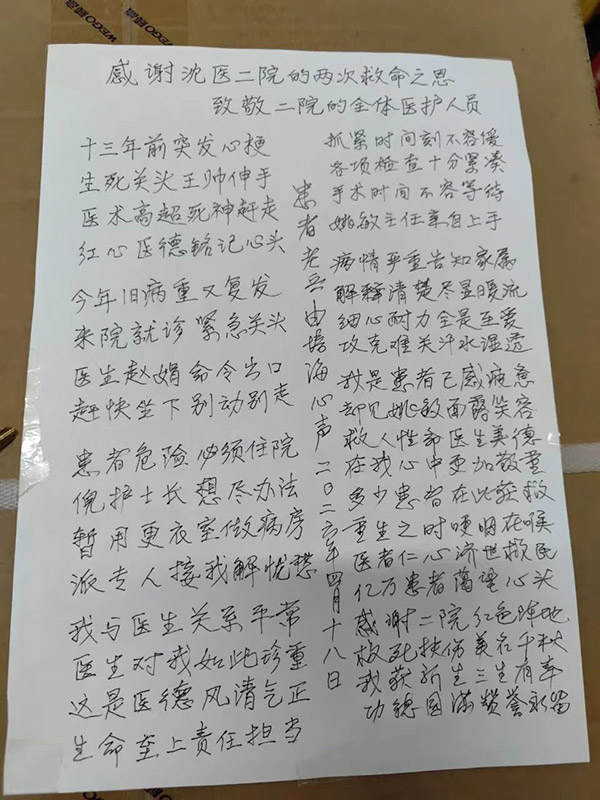 感谢沈医二院的两次救命之恩
致敬二院的全体医护人员
十三年前突发心梗
生死关头王帅伸手
医术高超死神赶走
红心医德铭记心头
今年旧病重又复发
来院就诊紧急关头
医生赵娟命令出口
赶快坐下别动别走
患者危险必须住院
倪护士长想尽办法
暂用更衣室做病房
派专人接我解忧愁
我与医生关系平常
医生对我如此珍重
这是医德风清气正
生命至上责任担当
患者老兵由培海心声二〇二六年四月十八日
抓紧时间刻不容缓
各项检查十分紧凑
手术时间不容等待
姚敏主任亲自上手
病情严重告知家属
解释清楚尽显暖流
细心耐力全是至爱
攻克难关汗水湿透
我是患者已感疲惫
却见姚敏面露笑容
救人性命医生美德
在我心中更加敬重
多少患者在此获救
重生之时哽咽在喉
医者仁心济世救民
亿万患者蔼望心头
感谢二院红色阵地
救死扶伤美名千秋
我获新生三生有幸
功德圆满赞誉永留
WEGO威高